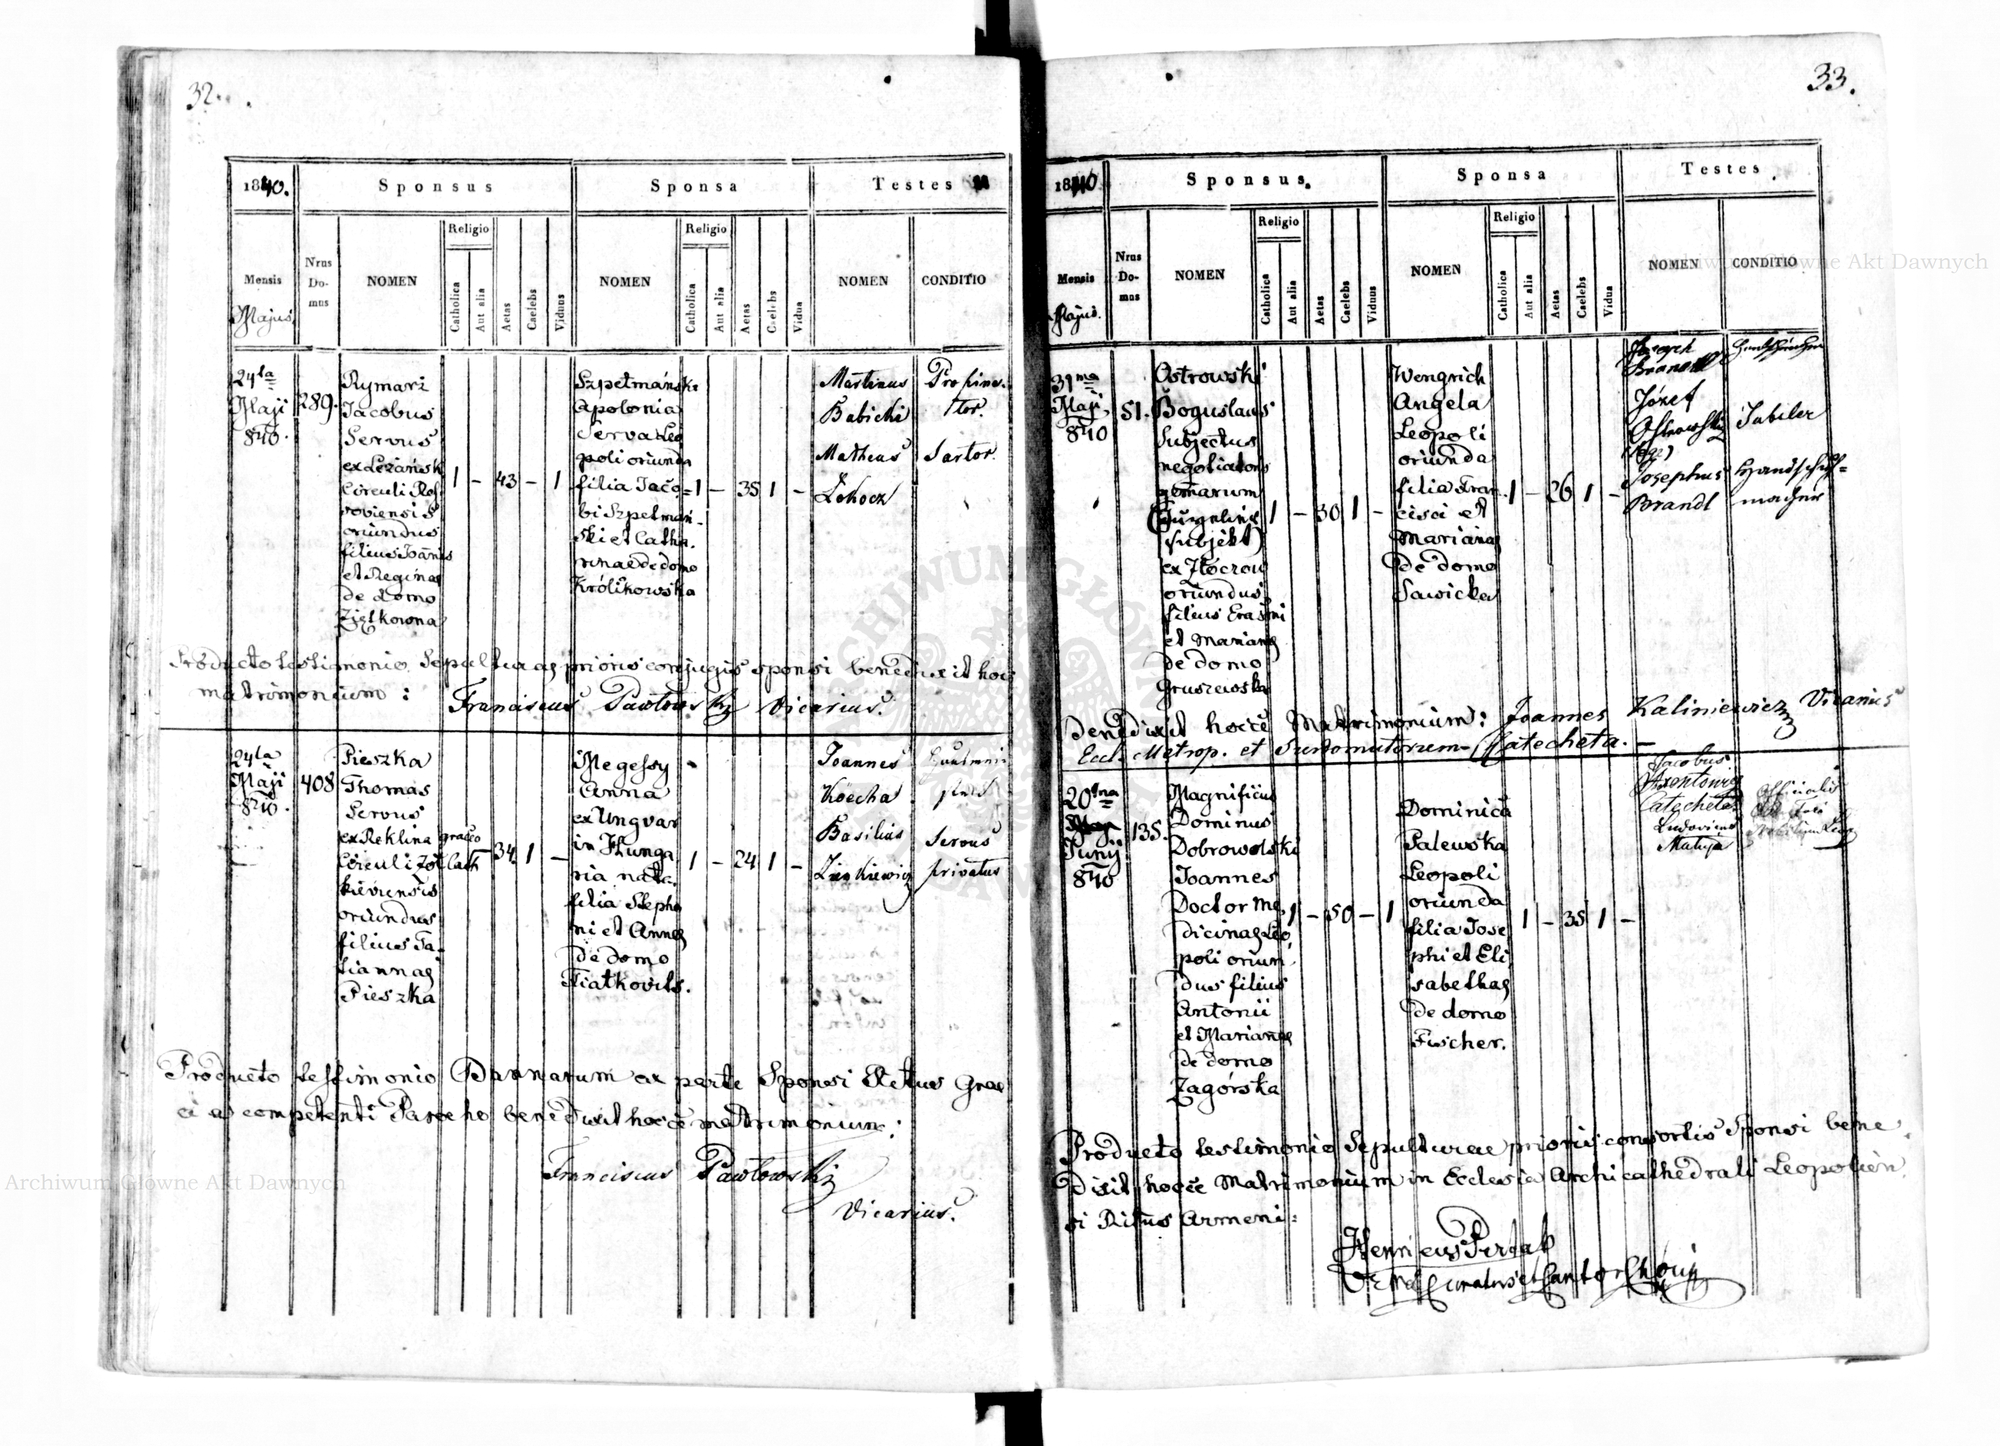 32.
1840.
Sponsus
Sponsa
Testes
Mensis
Majus.
Nrus Domus
NOMEN
Religio
Catholica
Aut alia
Aetas
Caelebs
Viduus
NOMEN
Religio
Catholica
Aut alia
Aetas
Caelebs
Vidua
NOMEN
CONDITIO
24ta
Maji
840.
289.
Rymarz
Jacobus
Servus
ex Leżańsk
Circuli Res
soviensis
oriundus
filius Joannis
et Reginae
de domo
Ziętkowna
1 – 43 – 1
Szpetmańska
Apolonia
Serva Leo
poli oriunda
filia Jaco=
bi Szpetmań-
ski et Catha.
rinae de domo
Królikowska
1 – 35 1 –
Martinus
Babicki
Matheus
Propina-
tor.
Sartor.
Producto testimonio Sepulturae prioris conjugis sponsi benedixit hoc
matrimonium: Franciscus Pawłowski Vicarius.
24ta
Maji
840.
408
Pieszka
Thomas
Servus
ex Reklina
Circuli Żół
kieviensis
oriundus
filius Ta-
tiannae
Pieszka
graeco
Cath – 34 1 –
Megessy
Anna
ex Ungvar
in Hunga
ria nata.
filia Stepha
ni et Annae
de domo
Fiatkovits.
1 – 24 1 –
Joannes
Kocha
Basilius
Servus
privatus
Producto testimonio Bannorum ex parte Sponsi Ritus Grae
ci a competenti Parocho benedixit hocce matrimonium:
Franciscus Pawłowski
Vicarius.
33.
1840
Sponsus
Sponsa
Testes
Mensis
Majus.
Nrus Domus
NOMEN
Religio
Catholica
Aut alia
Aetas
Caelebs
Viduus
NOMEN
Religio
Catholica
Aut alia
Aetas
Caelebs
Vidua
NOMEN
CONDITIO
Maji
840
51.
Ostrowski
Boguslaus
Subjectus
negotiatoris
gemarum
subjekt)
ex Złoczow
oriundus
filius Erasmi
et Marianae
de domo
Gruszewska
1 – 30 1 –
Wengrich
Angela
Leopoli
oriunda
filia Fran
cisci et
Mariánae
de domo
Sawicka
1 – 26 1 –
Joseph
Brandl
Józef
Ostrowski
Jubiler
Josephus
Brandl
Handschuh=
macher
Benedixit hocce Matrimonium: Joannes Kaliniewicz Vicarius
Eccl. Metrop. et Surdomutorum Catecheta. –
20ma
Junij
840
135.
Magnificus
Dominus
Dobrowolski
Joannes
Doctor Me
dicinae Leo
poli oriun
dus filius
Antonii
et Mariannae
de domo
Zagórska
1 – 50 – 1
Dominica
Palewska
Leopoli
oriunda
filia Jose
phi et Eli
sabethae
de domo
Fischer.
1 – 35 1 –
Jacobus
Catecheta
Ludovicus
Officialis
Producto testimonio Sepulturae prioris consortis Sponsi bene
dixit hocce Matrimonium in Ecclesia Archicathedrali Leopolien
si Ritus Armeni:
Henricus
Archiwum Główne Akt Dawnych
Archiwum Główne Akt Dawnych
ARCHIWUM GŁÓWNE AKT DAWNYCH